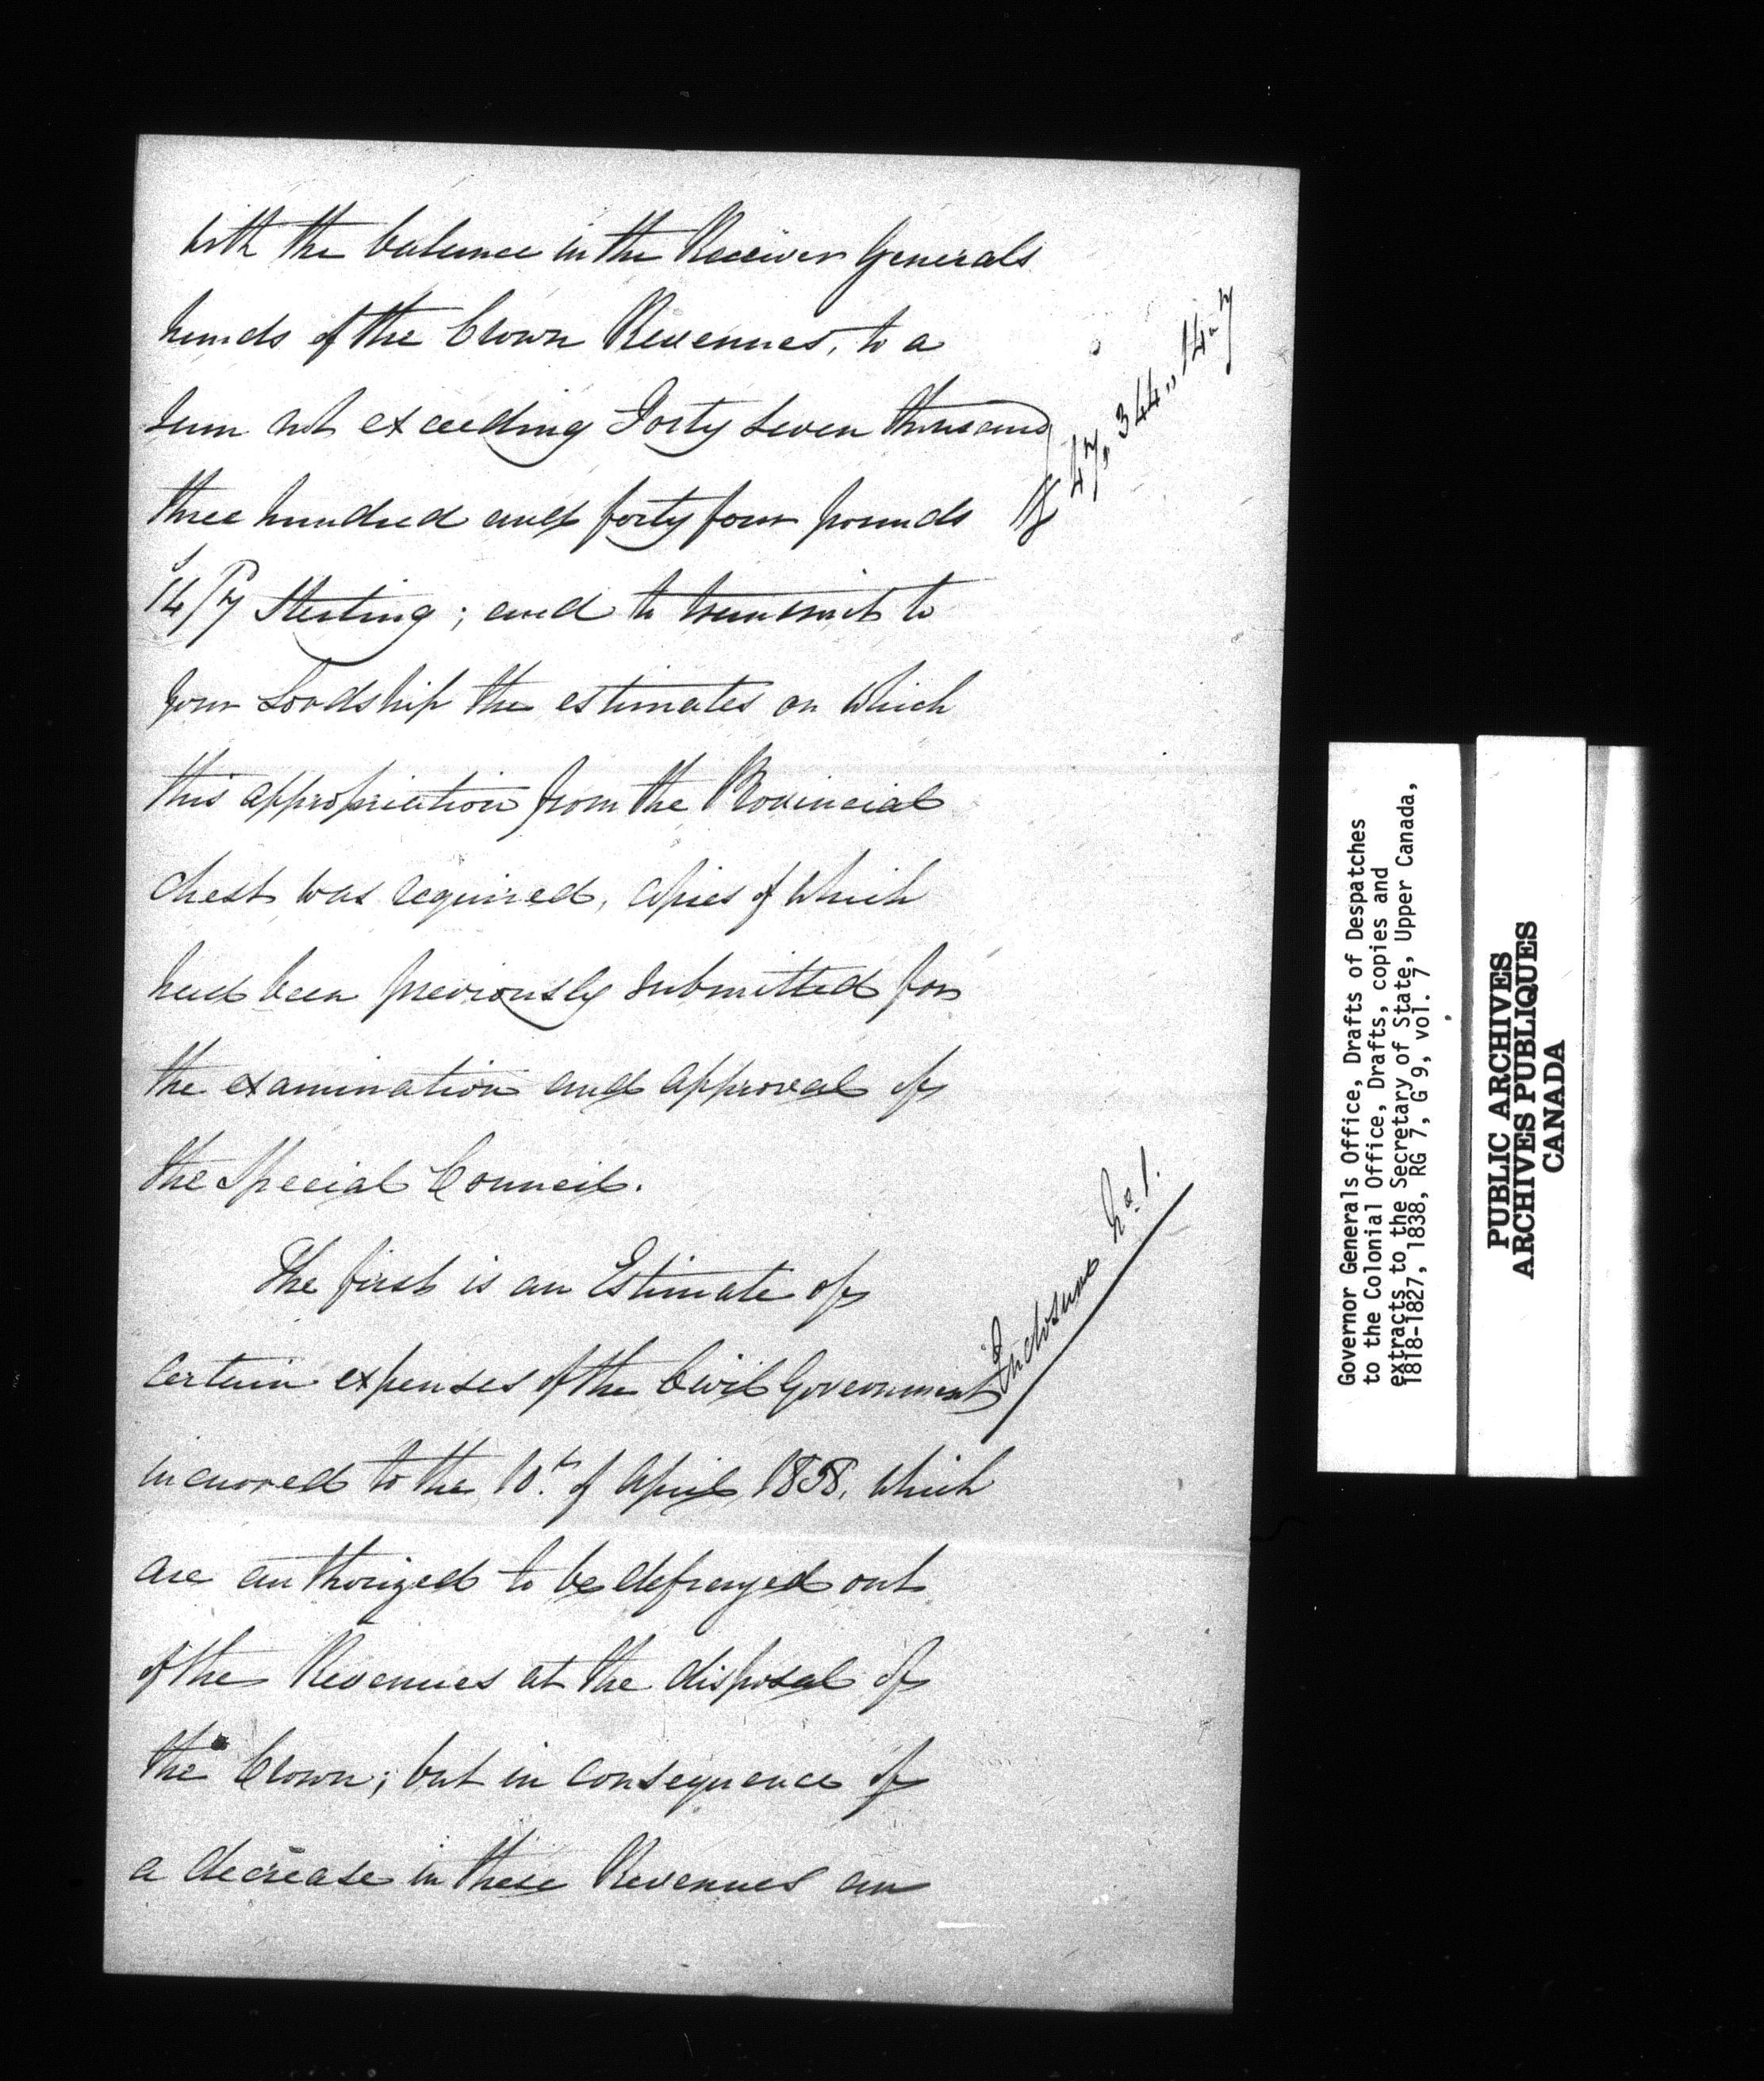 with the balance in the Receiver Generals
hands of the Crown Revenues, to a
sum not exceeding Forty seven thousand
three hundred and forty four pounds
14/7 Sterling; and to transmit to
your Lordship the estimates on which
this appropriation from the Provincial
chest was required, copies of which
had been previously submitted for
the examination and approval of
the Special Council.
The first is an Estimate of
certain expenses of the Civil Government
incurred to the 10th. of April 1838, which
are authorized to be defrayed out
of the Revenues at the disposal of
the Crown; but in consequence of
a decrease in these Revenues an
£47,,344,,14,,7
Enclosure No 1.
Governor Generals Office, Drafts of Despatches
to the Colonial Office, Drafts, copies and
extracts to the Secretary of State, Upper Canada,
1818-1827, 1838, RG 7, G 9, vol. 7
PUBLIC ARCHIVES
ARCHIVES PUBLIQUES
CANADA